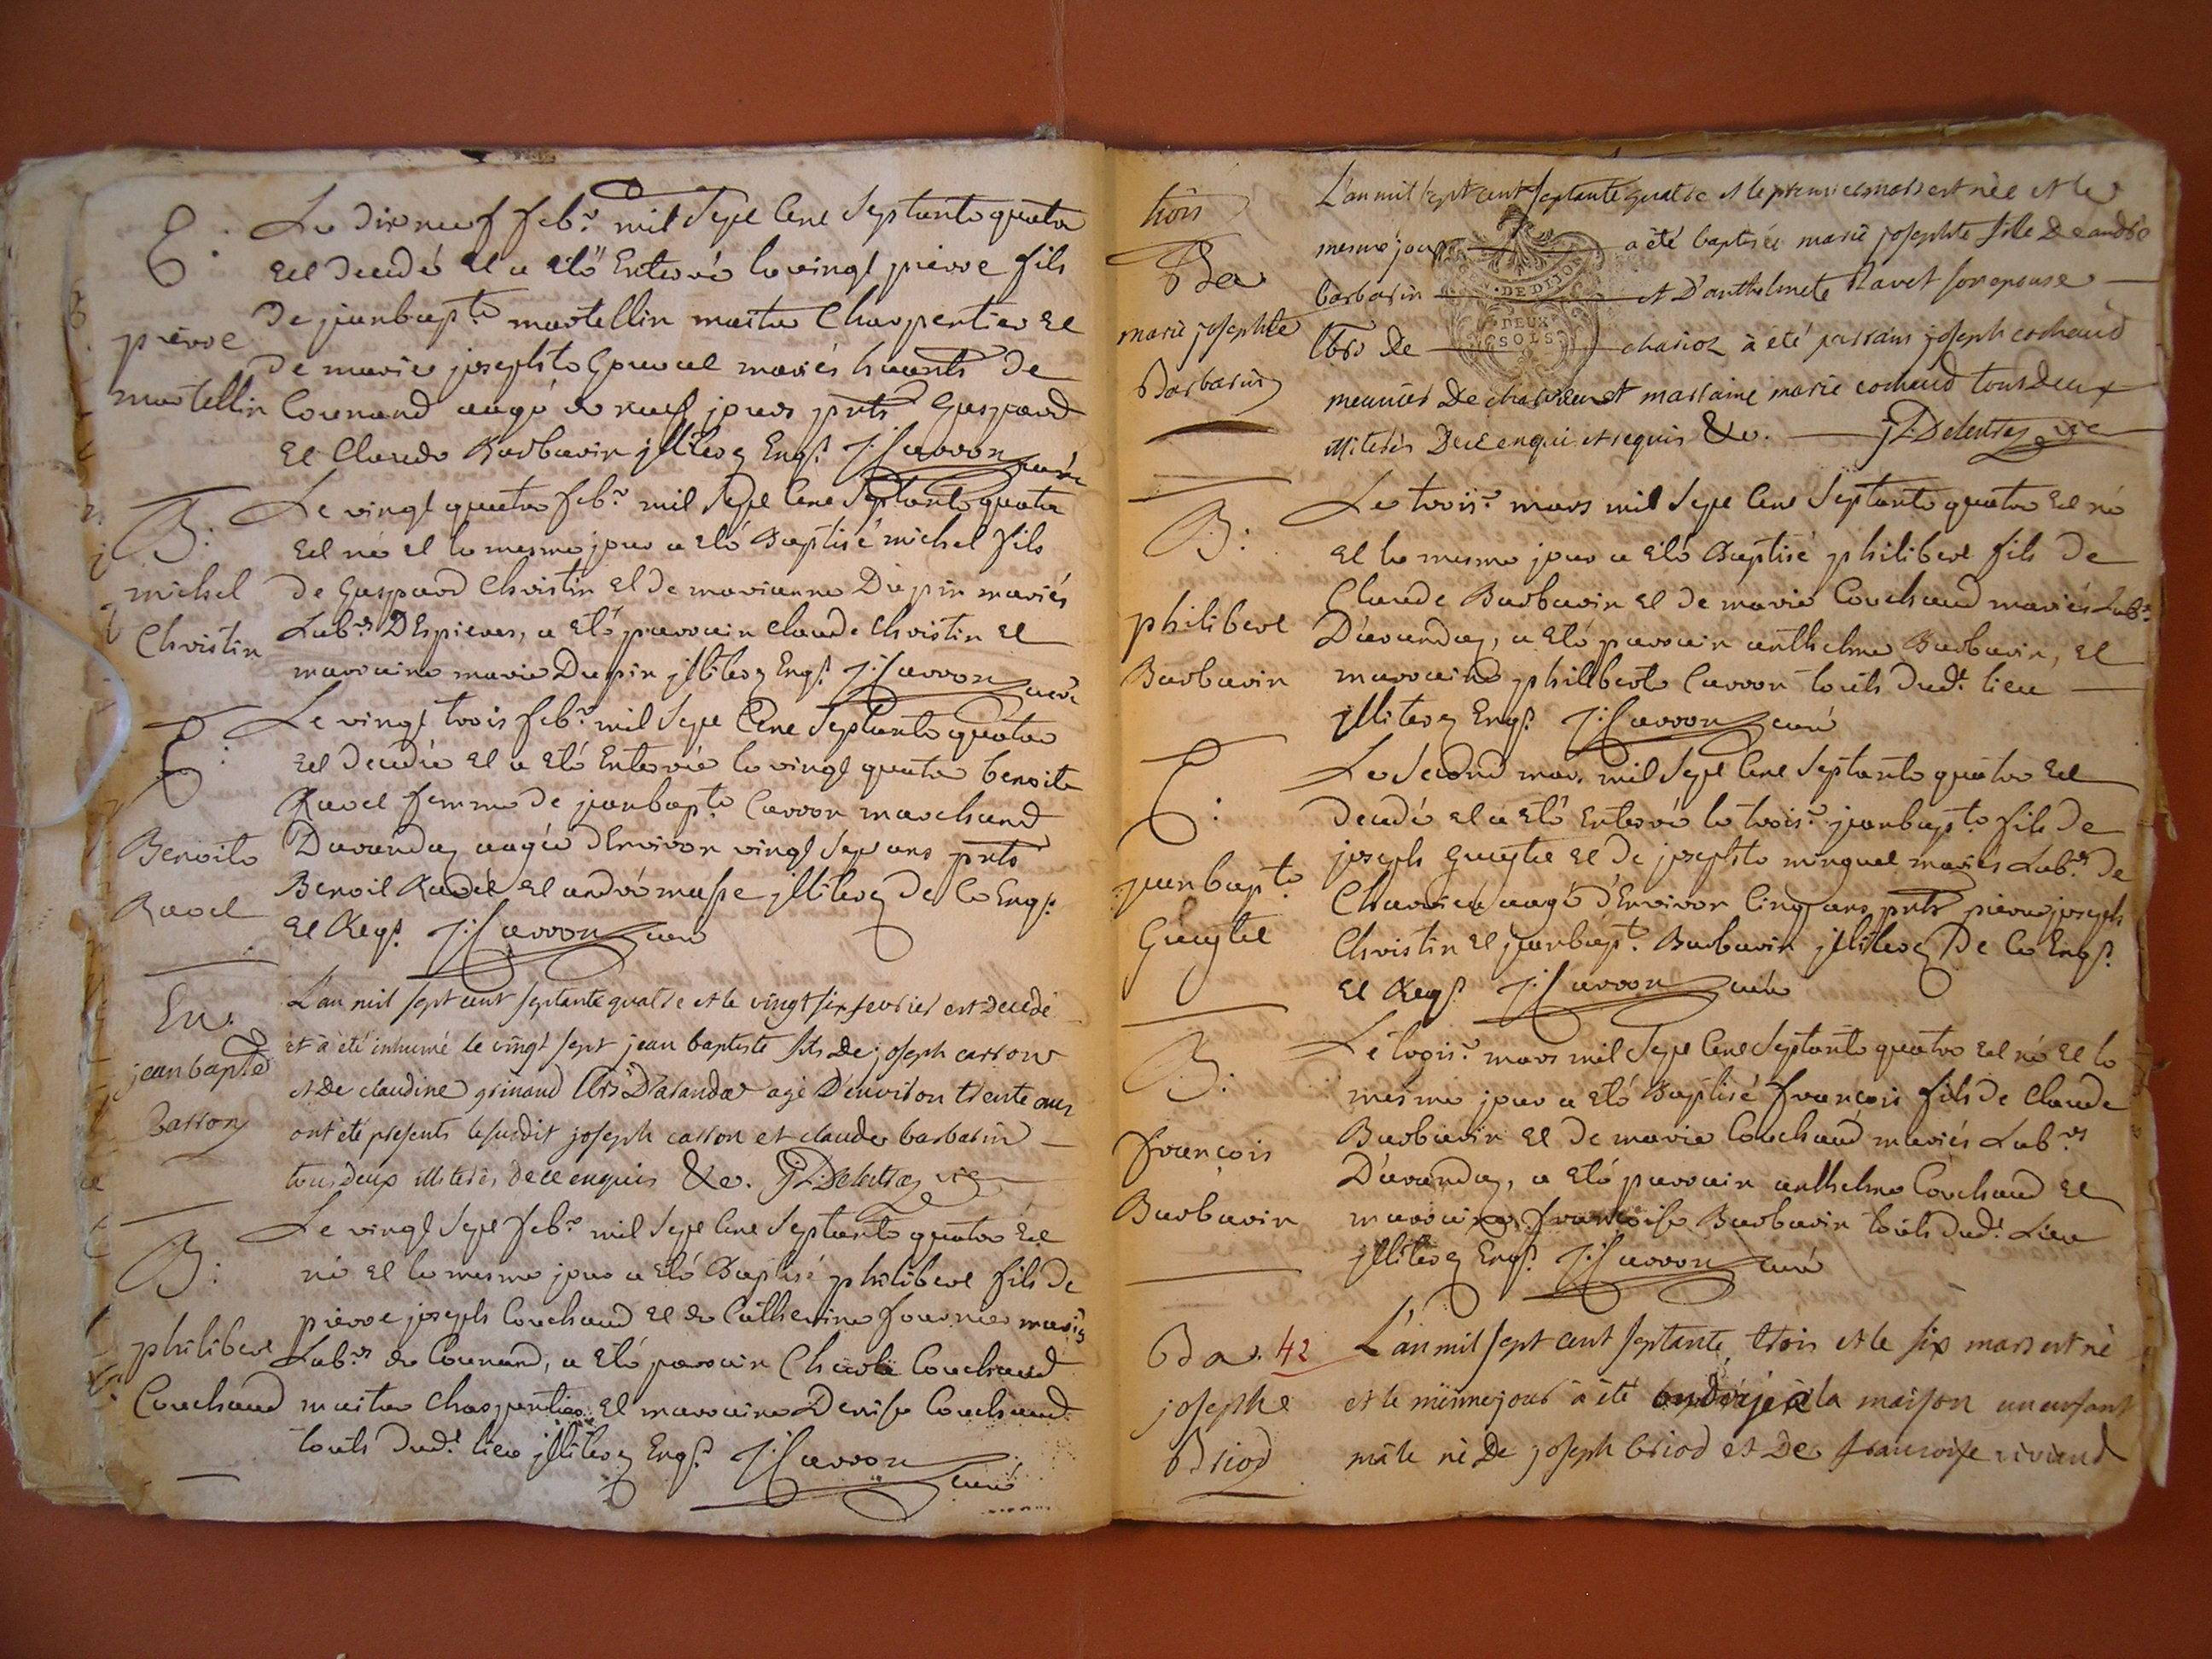 E:
pierre
martellin
Le dix neuf feb.r mil Sept Cent Septante quatre
Est decedé Et a Eté Enterré le vingt pierre fils
de jeanbapt.e martellin maitre Charpentier Et
de marie josephte mariés habitants de
Counand aagé de neuf jours pnts Gaspard
Et Claude Barbarin jlliterez Enq.s J: Carron curé
B:
michel
Christin
Le vingt quatre feb.r mil Sept Cent Septante quatre
Est né Et le mesme jour a Eté Baptisé michel fils
de Gaspard Christin Et de marianne Dupin mariés
Lab.rs DEspieres, a Eté parrain Claude Christin Et
marraine marie Dupin jlliterez Enq.s J: Carron curé
E:
Benoite
Ravet
Le vingt trois feb.r mil Sept Cent Septante quatre
Est decedée Et a Eté Enterrée le vingt quatre benoite
Ravet femme de jeanbapt.e Carron marchand
Darandaz aagée dEnviron vingt Sept ans pnts
Benoit Ravet Et andré masse jlliterez de Ce Enq.s
Et Req.s J: Carron curé
En.
jean bapte
Carron
L'an mil sept cent septante quatre et le vingt six fevrier est decedé
et à été inhumé le vingt sept jean baptiste fils De joseph carron
et De claudine grinand Lbrs D'arandas agé D'environ trente ans
ont été presents le susdit joseph carron et claude barbarin
tous deux illiterés de ce enquis &c. J: Delestraz vic
B:
philibert
Couchaud
Le vingt Sept feb.r mil Sept Cent Septante quatre Est
né Et le mesme jour a Eté Baptisé philibert fils de
pierre joseph Couchaud Et de Catherine fournier mariés
Lab.rs de Counand, a Eté parrain Charle Couchaud
maitre Charpentier Et marraine Denise Couchaud
touts dud.t lieu jlliterez Enq.s J: Carron
curé
trois
Ba
marie josephte
Barbarin
L'an mil sept cent septante quatre et le premier mars est née et le
mesme jour a été baptisée marie josephte fille De andré
barbarin et D'anthelmete Ravet son epouse
lbrs De chariot à été parrain joseph cochaud
meunier De chariot et marraine marie cochaud tous deux
illiterés De ce enqui et requis &c. J: Delestraz vic
DE DIJON
DEUX
SOLS
B:
philibert
Barbarin
Le trois.e mars mil Sept Cent Septante quatre Est né
Et le mesme jour a Eté Baptisé philibert fils de
Claude Barbarin Et de marie Couchaud mariés Lab.rs
D'arandaz, a Eté parrain anthelme Barbarin, Et
marraine philiberte Carron touts dud.t lieu
jlliterez Enq.s J: Carron curé
E:
jeanbapt.e
Le Second mars mil Sept Cent Septante quatre Est
decedé Et a Eté Enterré le trois.e jeanbapt.e fils de
joseph Et de josephte minguet mariés Lab.rs de
aagé dEnviron Cinq ans pnts pierre joseph
Christin Et jeanbapt.e Barbarin jlliterez De Ce Enq.s
Et Req.s J: Carron curé
B:
françois
Barbarin
Le trois.e mars mil Sept Cent Septante quatre Est né Et le
mesme jour a Eté Baptisé françois fils de Claude
Barbarin Et de marie Couchaud mariés Lab.rs
D'arandaz, a Eté parrain anthelme Couchaud Et
marraine françoise Barbarin touts dud.t Lieu
jlliterez Enq.s J: Carron curé
Ba. 42
josephe
Briod
L'an mil sept cent septante trois et le six mars est né
et le même jour à été ondoyé à la maison un enfant
mâle né De joseph briod et De francoise viviand